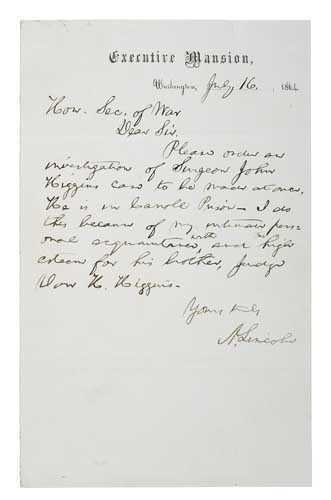 Executive Mansion,
Washington, July 16, 1864
Hon. Sec. of War
Dear Sir.
Please order an
investigation of Surgeon John
Higgins case to be made at once.
He is in Carroll Prison - I do
this because of my intimate per-
sonal acquaintance with, and high
esteem for his brother, Judge
Van H. Higgins-
Yours truly
A. Lincoln